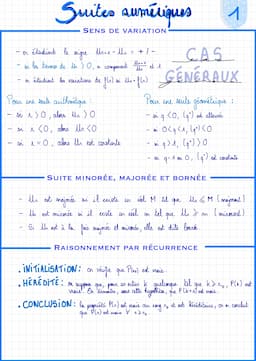 Suites numériques
1
SENS DE VARIATION
- en étudiant le signe Un+1 - Un = + / -
- si les termes de Un > 0, on comparant Un+1/Un et 1
- en étudiant les variations de f(x) si Un = f(n)
CAS
GÉNÉRAUX
Pour une suite arithmétique :
- si r > 0, alors Un > 0
- si r < 0, alors Un < 0
- si r = 0, alors Un est constante
Pour une suite géométrique :
- si q < 0, (qⁿ) est alternée
- si 0 < q < 1, (qⁿ) < 0
- si q > 1, (qⁿ) > 0
- si q = 1 ou 0, (qⁿ) est constante
SUITE MINORÉE, MAJORÉE ET BORNÉE
- Un est majorée si il existe un réel M tel que Un ≤ M (majorant)
- Un est minorée si il existe un réel m tel que Un ≥ m (minorant)
- Si Un est à la fois majorée et minorée, elle est dite bornée.
RAISONNEMENT PAR RÉCURRENCE
• INITIALISATION : on vérifie que P(n₀) est vraie.
• HÉRÉDITÉ : on suppose que, pour un entier k quelconque tel que k ≥ n₀, P(k) est
vraie. On démontre, sous cette hypothèse, que P(k+1) est vraie.
• CONCLUSION : la propriété P(n) est vraie au rang n₀ et est héréditaire, on en conclut
que P(n) est vraie ∀ n ≥ n₀.